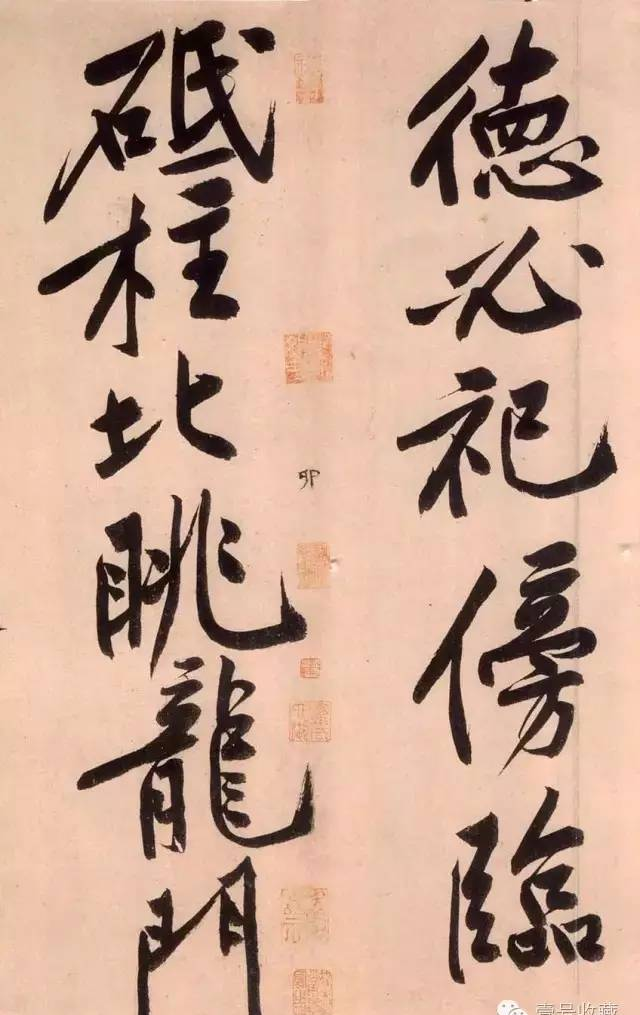 德必祀傍臨
砥柱北眺龍門
卯
壹号收藏